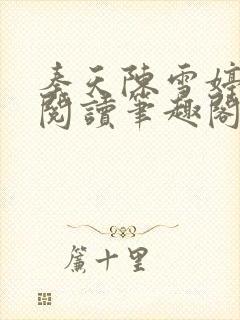 秦天陳雪婷
閱讀筆趣閣
簾十里